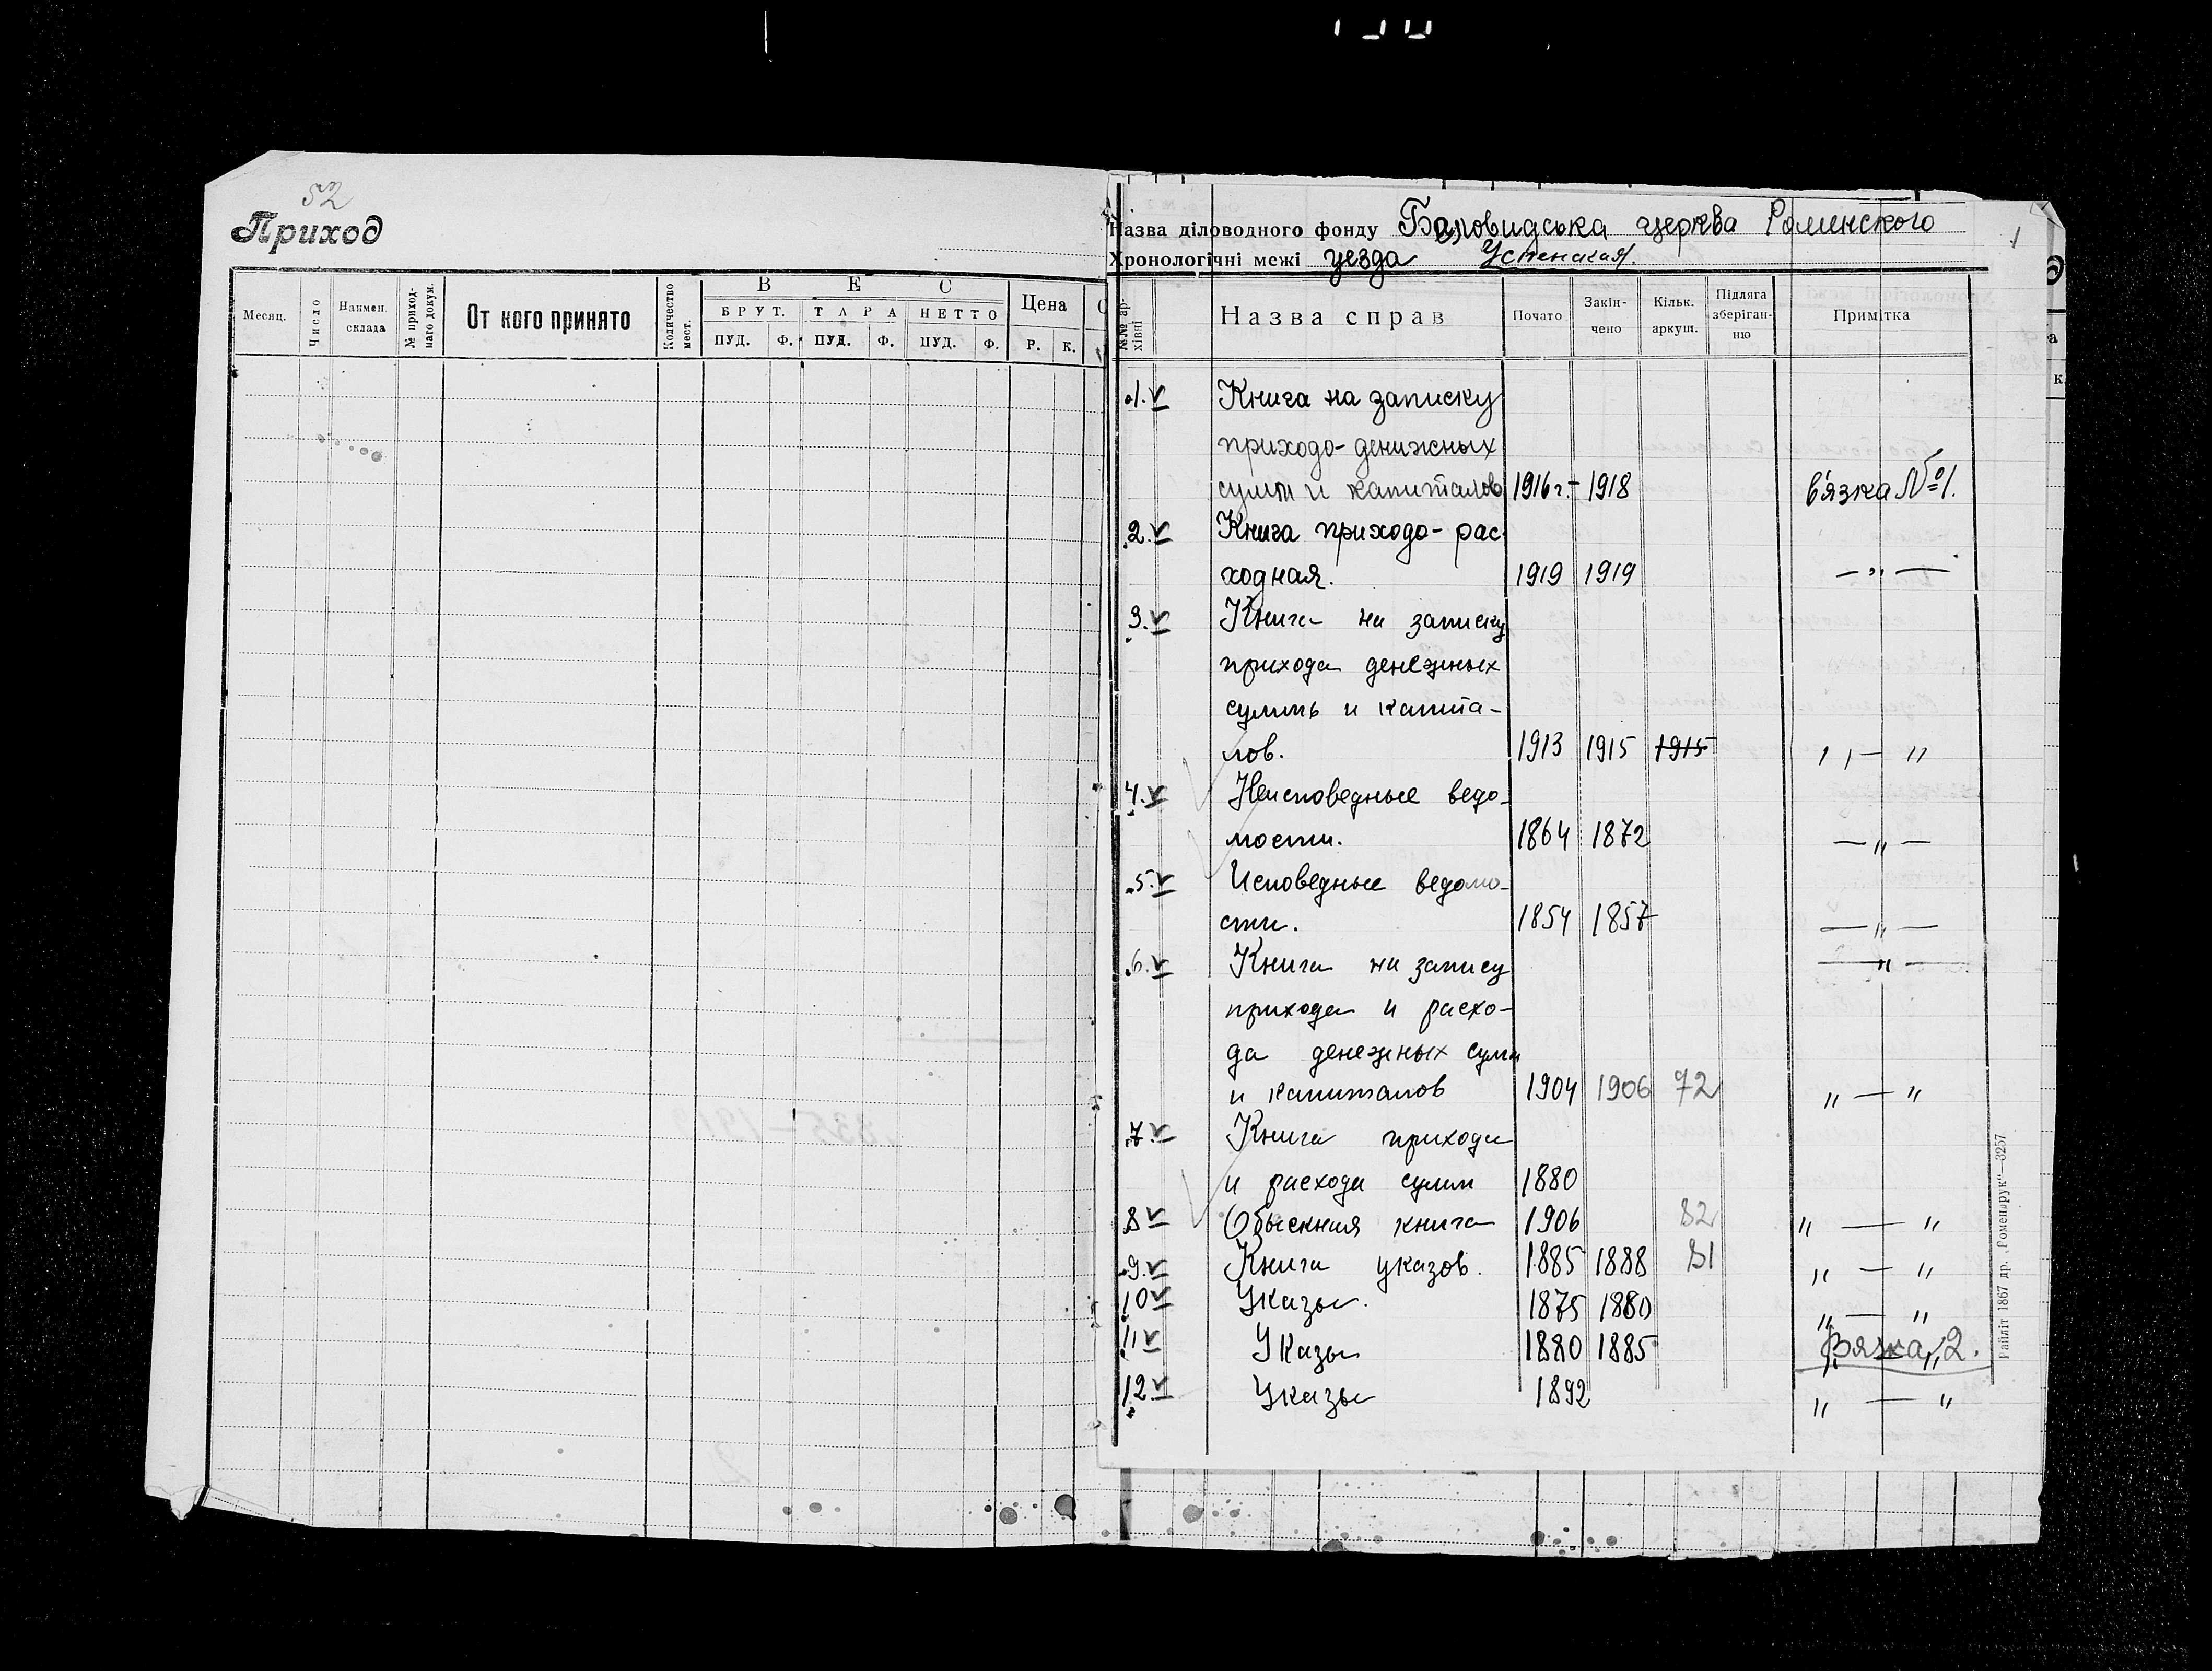 52
Приход
Месяц.
Число
Наимен. склада
№ приход-наго докум.
От кого принято
Количество мест.
ВЕС
БРУТ. ТАРА НЕТТО
ПУД. Ф. ПУД. Ф. ПУД. Ф.
Цена
Р. К.
1
Назва діловодного фонду Баловидська церква Роменского
Хронологічні межі уезда Успенская
№№ ар-хівні
Назва справ
Почато
Закін-чено
Кільк. аркуш.
Підляга зберіган-ню
Примітка
1. v Книга на записку
приходо-денижных
сумм и капиталов 1916 г. - 1918 в'язка №1.
2. v Книга приходо-рас
ходная. 1919 1919 — " —
3. v Книга на записку
прихода денежных
суммъ и капита-
лов. 1913 1915 1915 " — "
4. v Неисповедные ведо-
мости. 1864 1872 — " —
5. v Исповедные ведомо-
сти. 1854 1857 — " —
6. v Книга на запису — " —
прихода и расхо-
да денежных сумм
и капиталов 1904 1906 72 " — "
7. v Книга прихода
и расхода сумм 1880
8 v Обыскная книга 1906 82 " — "
9. v Книга указов. 1885 1888 81 " — "
10 v Указы. 1875 1880 " — "
11 v Указы 1880 1885 Вязка 2.
12. v Указы 1892 " — "
1867 др. „Ромендрук“—3257